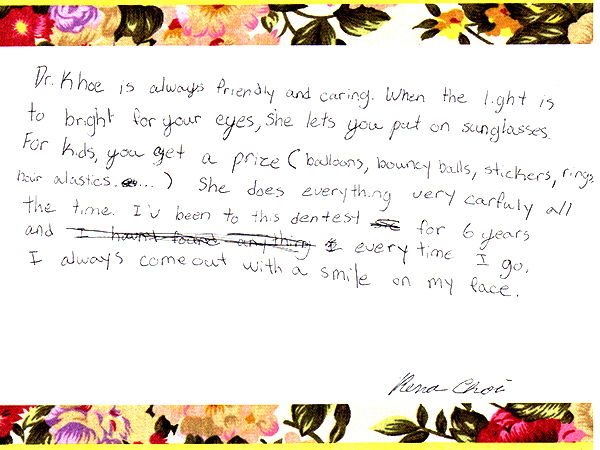 Dr. Khoe is always friendly and caring. When the light is
to bright for your eyes, she lets you put on sunglasses.
For kids, you get a prize (balloons, bouncy balls, stickers, rings,
hair alastics ....) She does everything very carfuly all
the time. I'v been to this dentest for 6 years
and I havn't found anything every time I go,
I always come out with a smile on my face.
Rena Choi